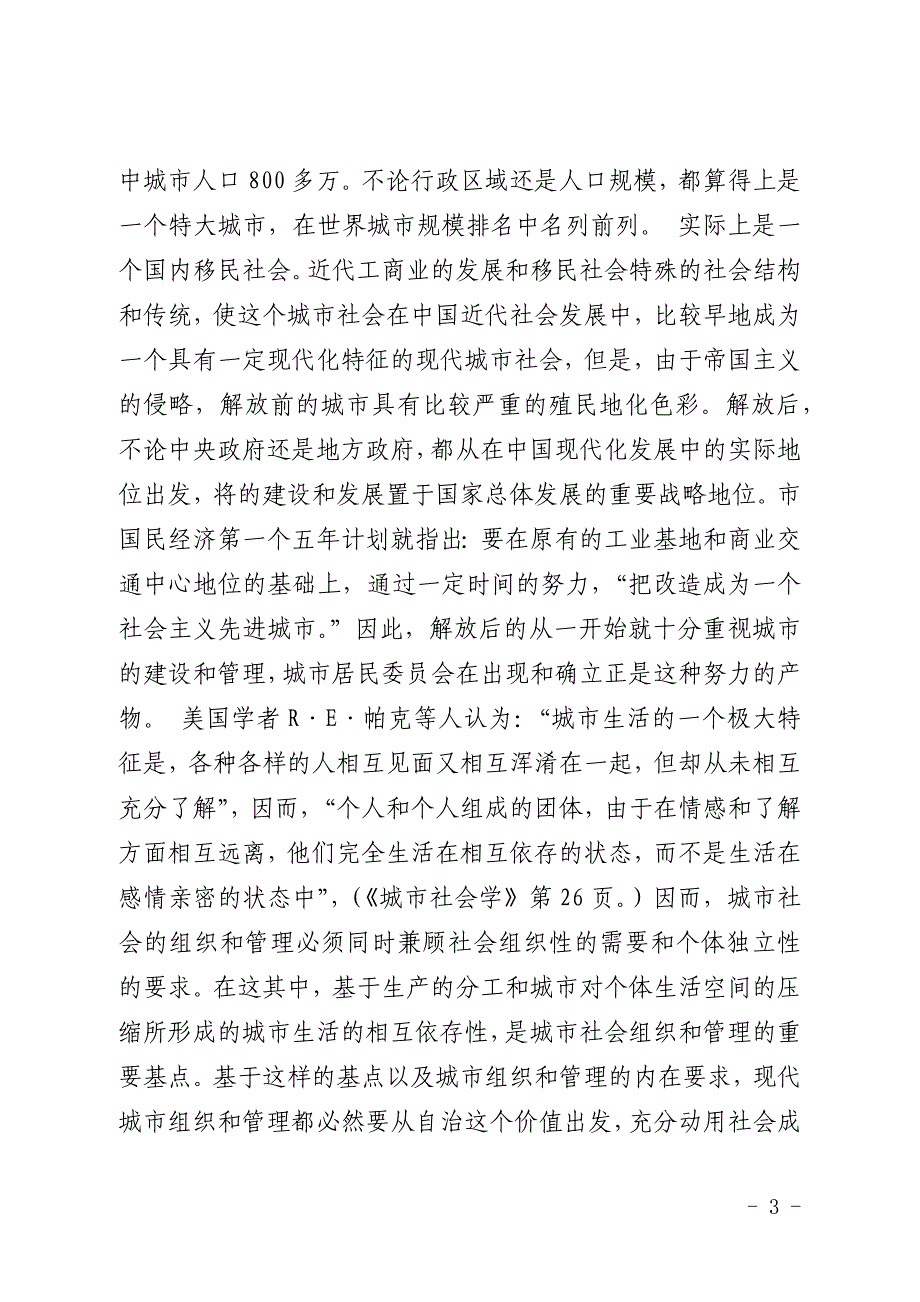 中城市人口 800 多万。不论行政区域还是人口规模，都算得上是
一个特大城市，在世界城市规模排名中名列前列。 实际上是一
个国内移民社会。近代工商业的发展和移民社会特殊的社会结构
和传统，使这个城市社会在中国近代社会发展中，比较早地成为
一个具有一定现代化特征的现代城市社会，但是，由于帝国主义
的侵略，解放前的城市具有比较严重的殖民地化色彩。解放后，
不论中央政府还是地方政府，都从在中国现代化发展中的实际地
位出发，将的建设和发展置于国家总体发展的重要战略地位。市
国民经济第一个五年计划就指出：要在原有的工业基地和商业交
通中心地位的基础上，通过一定时间的努力，“把改造成为一个
社会主义先进城市。”因此，解放后的从一开始就十分重视城市
的建设和管理，城市居民委员会在出现和确立正是这种努力的产
物。 美国学者 R·E·帕克等人认为：“城市生活的一个极大特
征是，各种各样的人相互见面又相互浑淆在一起，但却从未相互
充分了解”，因而，“个人和个人组成的团体，由于在情感和了解
方面相互远离，他们完全生活在相互依存的状态，而不是生活在
感情亲密的状态中”，(《城市社会学》第 26 页。) 因而，城市社
会的组织和管理必须同时兼顾社会组织性的需要和个体独立性
的要求。在这其中，基于生产的分工和城市对个体生活空间的压
缩所形成的城市生活的相互依存性，是城市社会组织和管理的重
要基点。基于这样的基点以及城市组织和管理的内在要求，现代
城市组织和管理都必然要从自治这个价值出发，充分动用社会成
- 3 -